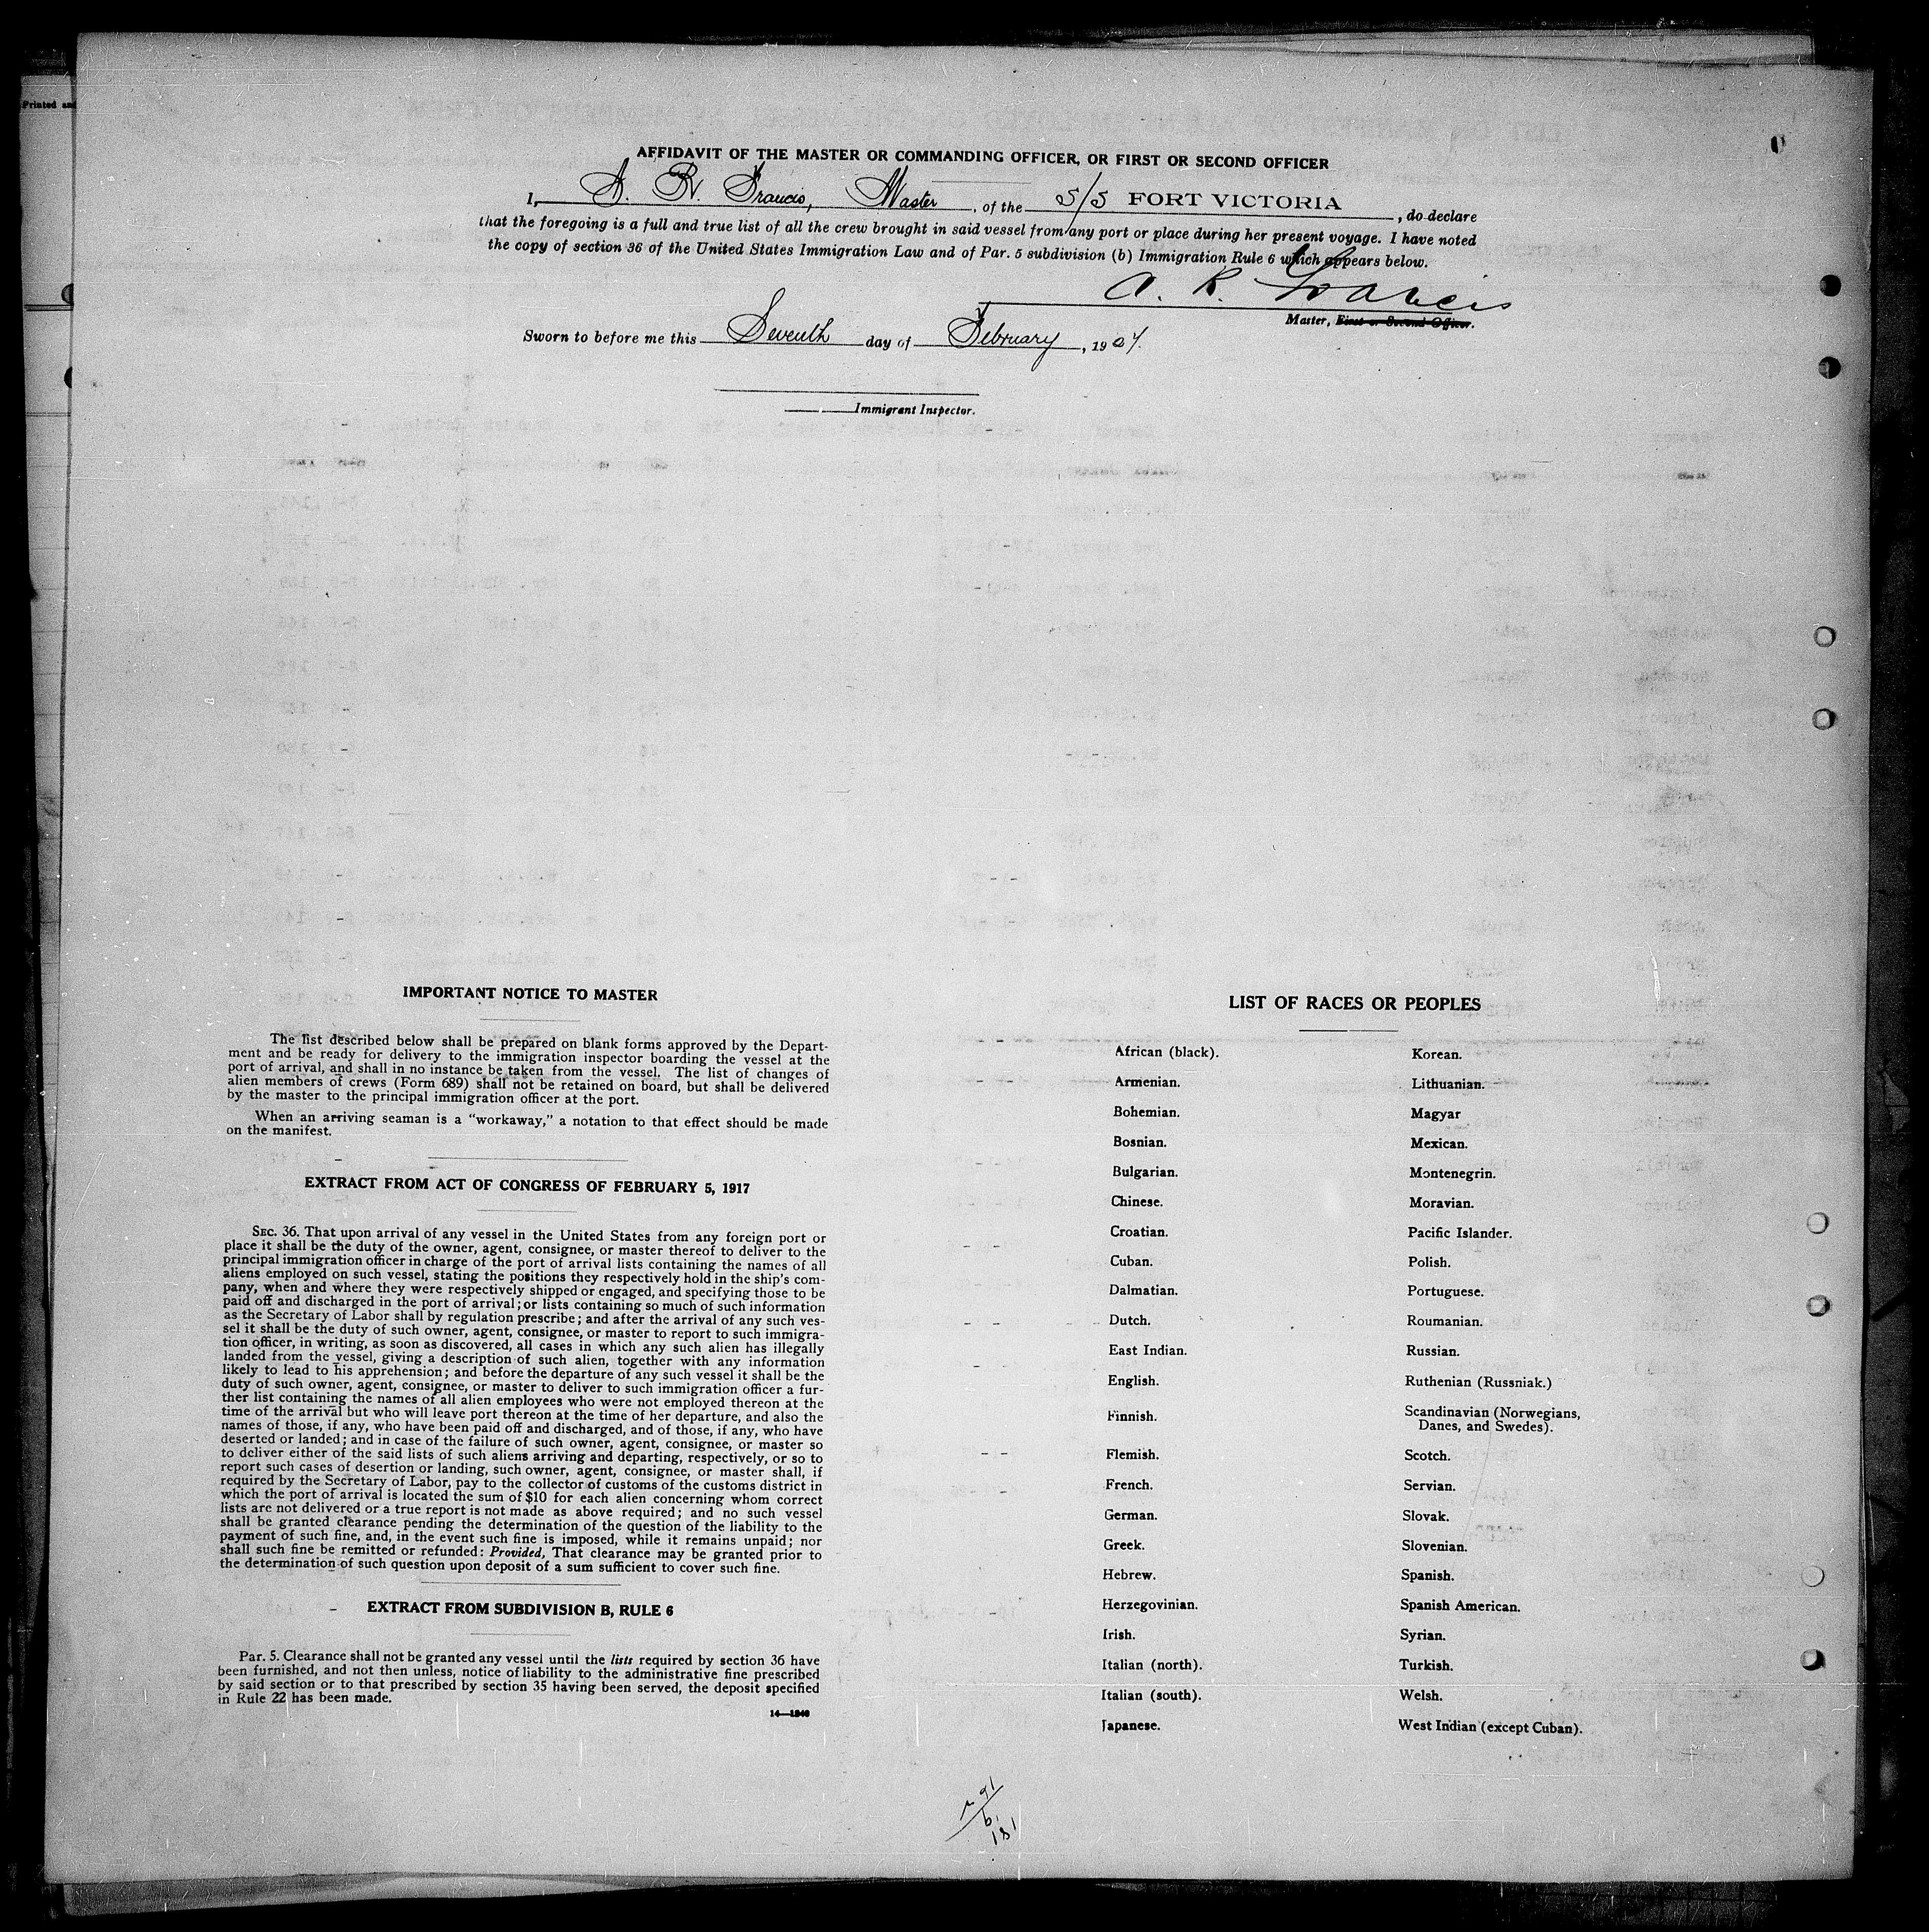 Printed and
AFFIDAVIT OF THE MASTER OR COMMANDING OFFICER, OR FIRST OR SECOND OFFICER
I, A. R. Francis, Master, of the S/S FORT VICTORIA, do declare
that the foregoing is a full and true list of all the crew brought in said vessel from any port or place during her present voyage. I have noted
the copy of section 36 of the United States Immigration Law and of Par. 5 subdivision (b) Immigration Rule 6 which appears below.
A. R. Francis
Master, First or Second Officer.
Sworn to before me this Seventh day of February, 19
Immigrant Inspector.
IMPORTANT NOTICE TO MASTER
The list described below shall be prepared on blank forms approved by the Depart-
ment and be ready for delivery to the immigration inspector boarding the vessel at the
port of arrival, and shall in no instance be taken from the vessel. The list of changes of
alien members of crews (Form 689) shall not be retained on board, but shall be delivered
by the master to the principal immigration officer at the port.
When an arriving seaman is a "workaway," a notation to that effect should be made
on the manifest.
EXTRACT FROM ACT OF CONGRESS OF FEBRUARY 5, 1917
SEC. 36. That upon arrival of any vessel in the United States from any foreign port or
place it shall be the duty of the owner, agent, consignee, or master thereof to deliver to the
principal immigration officer in charge of the port of arrival lists containing the names of all
aliens employed on such vessel, stating the positions they respectively hold in the ship's com-
pany, when and where they were respectively shipped or engaged, and specifying those to be
paid off and discharged in the port of arrival; or lists containing so much of such information
as the Secretary of Labor shall by regulation prescribe; and after the arrival of any such ves-
sel it shall be the duty of such owner, agent, consignee, or master to report to such immigra-
tion officer, in writing, as soon as discovered, all cases in which any such alien has illegally
landed from the vessel, giving a description of such alien, together with any information
likely to lead to his apprehension; and before the departure of any such vessel it shall be the
duty of such owner, agent, consignee, or master to deliver to such immigration officer a fur-
ther list containing the names of all alien employees who were not employed thereon at the
time of the arrival but who will leave port thereon at the time of her departure, and also the
names of those, if any, who have been paid off and discharged, and of those, if any, who have
deserted or landed; and in case of the failure of such owner, agent, consignee, or master so
to deliver either of the said lists of such aliens arriving and departing, respectively, or so to
report such cases of desertion or landing, such owner, agent, consignee, or master shall, if
required by the Secretary of Labor, pay to the collector of customs of the customs district in
which the port of arrival is located the sum of $10 for each alien concerning whom correct
lists are not delivered or a true report is not made as above required; and no such vessel
shall be granted clearance pending the determination of the question of the liability to the
payment of such fine, and, in the event such fine is imposed, while it remains unpaid; nor
shall such fine be remitted or refunded: Provided, That clearance may be granted prior to
the determination of such question upon deposit of a sum sufficient to cover such fine.
EXTRACT FROM SUBDIVISION B, RULE 6
Par. 5. Clearance shall not be granted any vessel until the lists required by section 36 have
been furnished, and not then unless, notice of liability to the administrative fine prescribed
by said section or to that prescribed by section 35 having been served, the deposit specified
in Rule 22 has been made.
14—1840
LIST OF RACES OR PEOPLES
African (black).
Armenian.
Bohemian.
Bosnian.
Bulgarian.
Chinese.
Croatian.
Cuban.
Dalmatian.
Dutch.
East Indian.
English.
Finnish.
Flemish.
French.
German.
Greek.
Hebrew.
Herzegovinian.
Irish.
Italian (north).
Italian (south).
Japanese.
Korean.
Lithuanian.
Magyar
Mexican.
Montenegrin.
Moravian.
Pacific Islander.
Polish.
Portuguese.
Roumanian.
Russian.
Ruthenian (Russniak.)
Scandinavian (Norwegians,
Danes, and Swedes).
Scotch.
Servian.
Slovak.
Slovenian.
Spanish.
Spanish American.
Syrian.
Turkish.
Welsh.
West Indian (except Cuban).